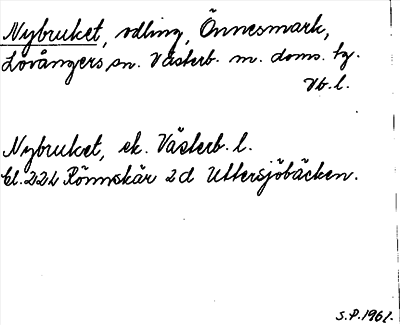 Nybruket, odling, Önnesmark,
Lövångers sn. Västerb. m. doms. tg.
Vb. l.
Nybruket, ek. Västerb. l.
Bl. 22L Rönnskär 2d Uttersjöbäcken.
S.P. 1961.